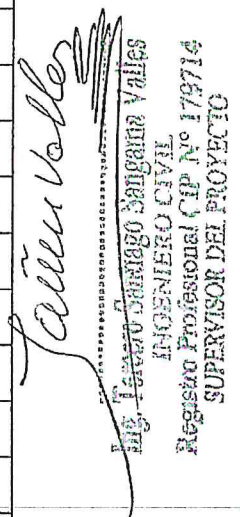 Valles
Ing. Santiago Sangama Valles
INGENIERO CIVIL
Registro Profesional CIP Nº 179714
SUPERVISOR DEL PROYECTO